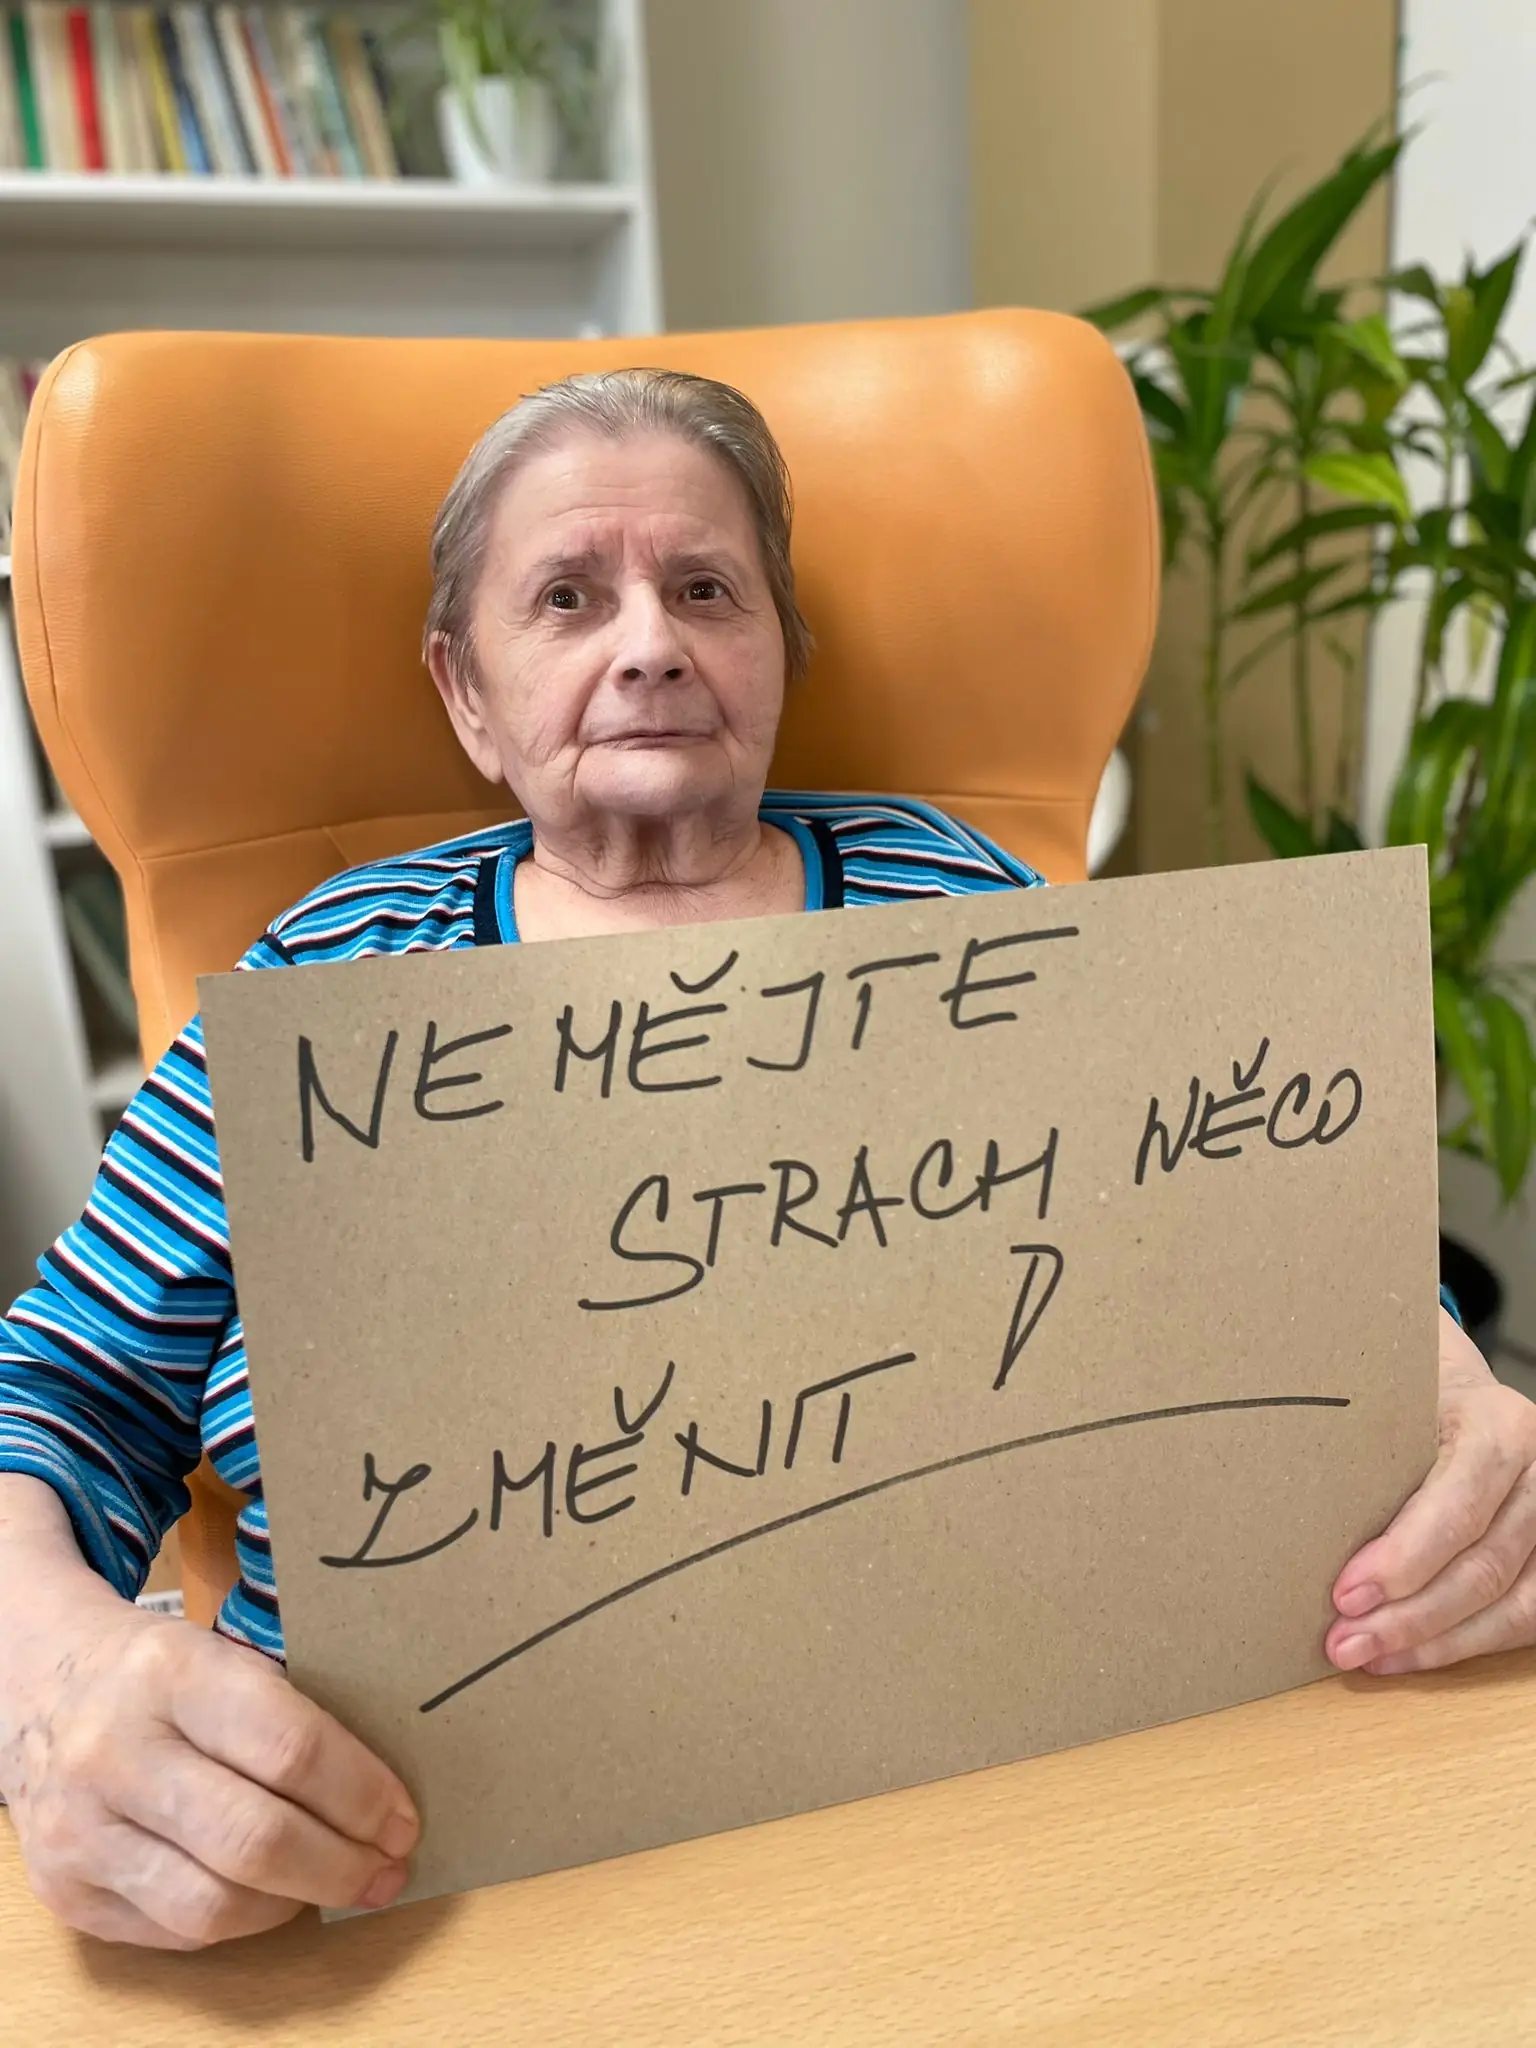 NEMĚJTE
STRACH NĚCO
ZMĚNIT